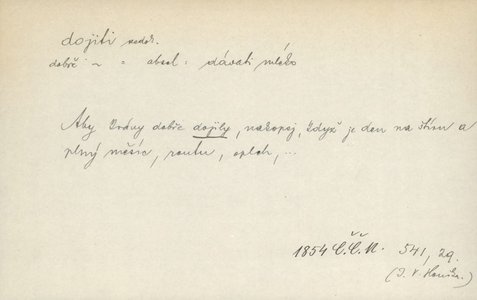 dojiti nedok.
dobře ~ = absol = dávati mléko
Aby krávy dobře dojily, nakopej, když je den na štíru a
plný měsíc, routu, oplch, ...
1854 Č.Č.M. 541, 29.
(J. V. Houška)